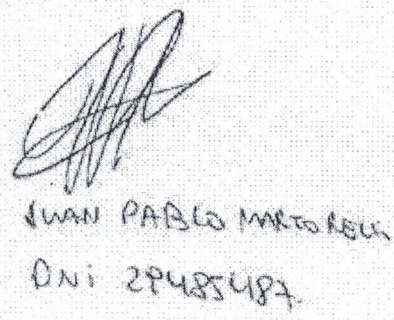 JUAN PABLO MARTORELL
DNi 29485487.